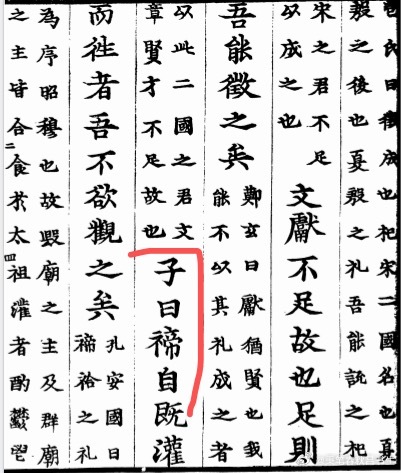 包氏曰徵成也杞宋二國名也夏
殷之後也夏殷之礼吾能說之杞
宋之君不足
以成之也
文獻不足故也足則
吾能徵之矣
鄭玄曰獻猶賢也我
能不以其礼成之者
以此二國之君文
章賢才不足故也
子曰禘自既灌
而徃者吾不欲觀之矣
孔安國曰
禘祫之礼
為序昭穆也故毀廟之主及群廟
之主皆合食扵太祖灌者酌鬱鬯